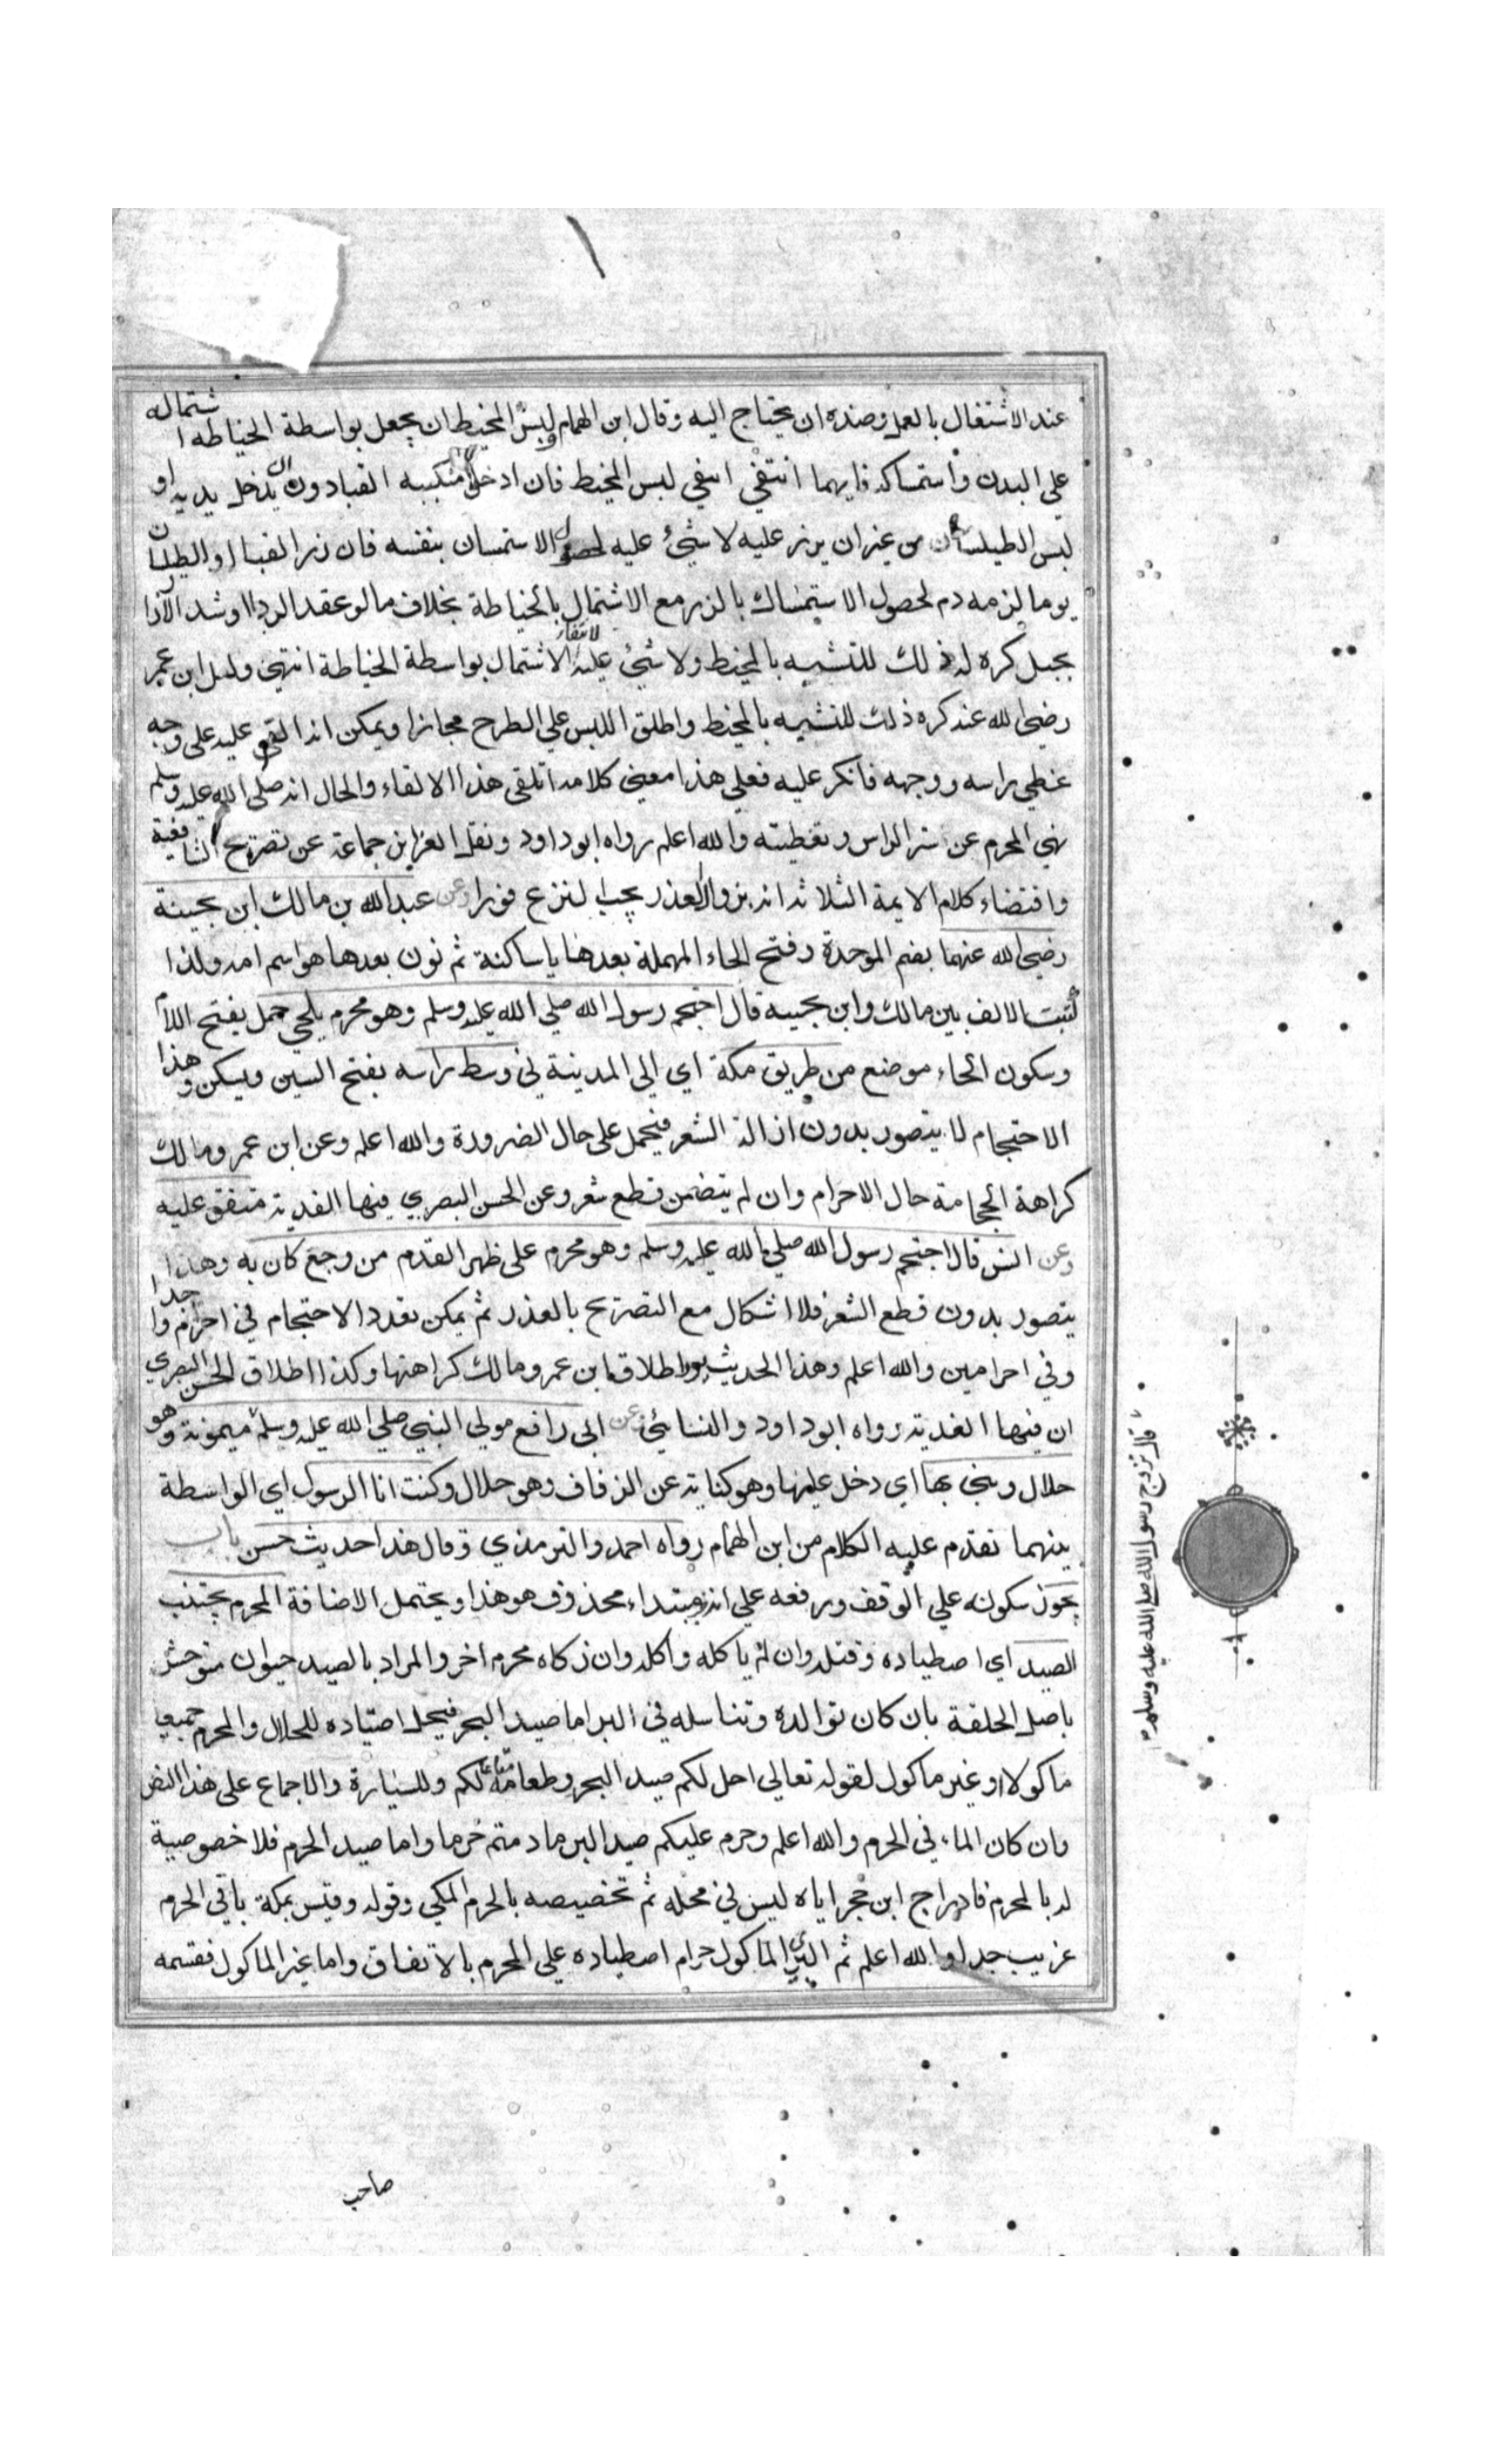 عند الاشتغال بالعمل وضده ان يحتاج اليه وقال ابن الهمام ولبس المخيط ان يجعل بواسطة الخياطة اشتماله
علي البدن واستمساكه فايهما انتفي انتفي لبس المخيط فان ادخل منكبيه القبا دون ان يدخل يديه او
لبس الطيلسان من غير ان يزر عليه لا شيء عليه لحصول الاستمسان بنفسه فان زر القبا او الطيلسان
يوما لزمه دم لحصول الاستمساك بالزر مع الاشتمال بالخياطة بخلاف ما لو عقد الردا او شد الازار
بحبل كره له ذلك للتشبيه بالمخيط ولا شيء عليه لانتفاء الاشتمال بواسطة الخياطة انتهي ولعل ابن عمر
رضي الله عنه كره ذلك للتشبيه بالمخيط واطلق اللبس علي الطرح مجازا ويمكن انه القي عليه على وجه
غطي راسه ووجهه فانكر عليه فعلي هذا معني كلامه اتلقى هذا الالقاء والحال انه صلى الله عليه وسلم
نهي المحرم عن ستر الراس وتغطيته والله اعلم رواه ابو داود ونقل العز ابن جماعة عن تصريح الشافعية
واقتضاء كلام الايمة الثلاثة انه بزوال العذر يجب النزع فورا وعن عبد الله بن مالك ابن بحينة
رضي الله عنهما بضم الموحدة وفتح الحاء المهملة بعدها يا ساكنة ثم نون بعدها هو اسم امه ولذا
كتبت الالف بين مالك وابن بحينه قال احتجم رسول الله صلي الله عليه وسلم وهو محرم بلحي جمل بفتح اللام
وسكون الحاء موضع من طريق مكة اي الي المدينة في وسط راسه بفتح السين ويسكن وهذا
الاحتجام لا يتصور بدون ازالة الشعر فيحمل على حال الضرورة والله اعلم وعن ابن عمر ومالك
كراهة الحجامة حال الاحرام وان لم يتضمن قطع شعر وعن الحسن البصري فيها الفدية متفق عليه
وعن انس قال احتجم رسول الله صلي الله عليه وسلم وهو محرم على ظهر القدم من وجع كان به وهذا
يتصور بدون قطع الشعر فلا اشكال مع التصريح بالعذر ثم يمكن تعدد الاحتجام في احرام واحدا
وفي احرامين والله اعلم وهذا الحديث يرد اطلاق ابن عمر ومالك كراهتها وكذا اطلاق الحسن البصري
ان فيها الفدية رواه ابو داود والنسائي وعن ابي رافع مولي النبي صلي الله عليه وسلم ميمونة وهو
حلال وبنى بها اي دخل عليها وهو كناية عن الزفاف وهو حلال وكنت انا الرسول اي الواسطة
بينهما تقدم عليه الكلام من ابن الهمام رواه احمد والترمذي وقال هذا حديث حسن باب
يجوز سكونه علي الوقف ورفعه علي انه مبتداء محذوف هو هذا ويحتمل الاضافة المحرم يجتنب
الصيد اي اصطياده وقتله وان لم ياكله واكله وان ذكاه محرم اخر والمراد بالصيد حيوان متوحش
باصل الخلقة بان كان توالده وتناسله في البر اما صيد البحر فيحل اصتياده للحلال والمحرم جميعا
ماكولا او غير ماكول لقوله تعالي احل لكم صيد البحر وطعامه متاعا لكم وللسيارة والاجماع على هذا النص
وان كان الماء في الحرم والله اعلم وحرم عليكم صيد البر ما دمتم حرما واما صيد الحرم فلا خصوصية
له بالمحرم فادراج ابن حجر اياه ليس في محله ثم تخصيصه بالحرم المكي وقوله وقيس بمكة باقي الحرم
غريب جدا والله اعلم ثم البري الماكول حرام اصطياده علي المحرم بالاتفاق واما غير الماكول فقسمه
قال تزوج رسول الله صلى الله عليه وسلم
صاحب